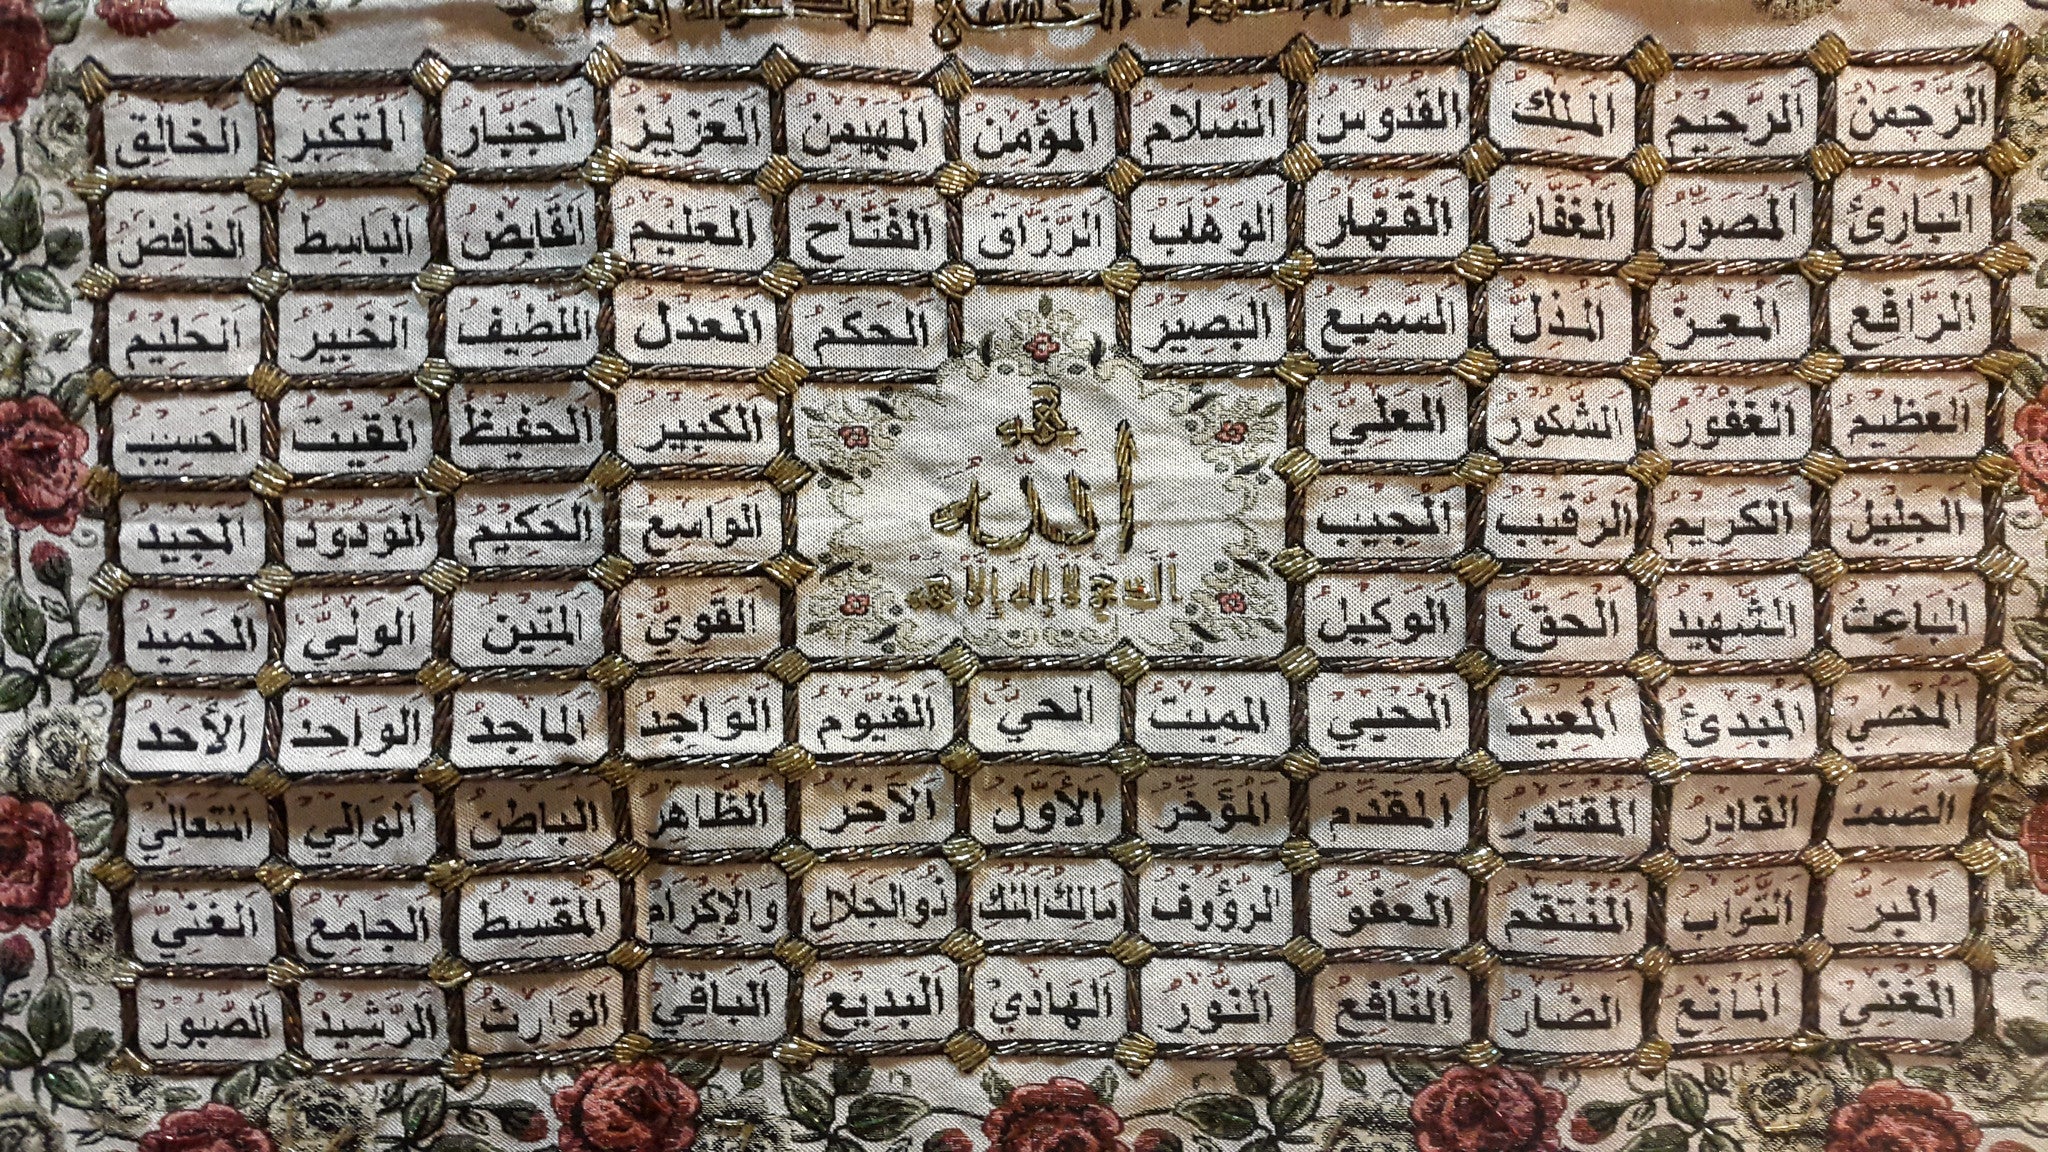 الرَّحْمَنُ الرَّحِيمُ المَلِكُ القُدُّوسُ السَّلَامُ المُؤْمِنُ المُهَيْمِنُ العَزِيزُ الجَبَّارُ المُتَكَبِّرُ الخَالِقُ
البَارِئُ المُصَوِّرُ الغَفَّارُ القَهَّارُ الوَهَّابُ الرَّزَّاقُ الفَتَّاحُ العَلِيمُ القَابِضُ البَاسِطُ الخَافِضُ
الرَّافِعُ المُعِزُّ المُذِلُّ السَّمِيعُ البَصِيرُ الحَكَمُ العَدلُ اللَّطِيفُ الخَبِيرُ الحَلِيمُ
العَظِيمُ الغَفُورُ الشَّكُورُ العَلِيُّ الكَبِيرُ الحَفِيظُ المُقِيتُ الحَسِيبُ
الله
الجَلِيلُ الكَرِيمُ الرَّقِيبُ المُجِيبُ الوَاسِعُ الحَكِيمُ الوَدُودُ المَجِيدُ
لا إله إلا
البَاعِثُ الشَّهِيدُ الحَقُّ الوَكِيلُ القَوِيُّ المَتِينُ الوَلِيُّ الحَمِيدُ
المُحصِي المُبْدِئُ المُعِيدُ المُحْيِي المُمِيتُ الحَيُّ القَيُّومُ الوَاجِدُ المَاجِدُ الوَاحِدُ الأَحَدُ
الصَّمَدُ القَادِرُ المُقْتَدِرُ المُقَدِّمُ المُؤَخِّرُ الأَوَّلُ الآخِرُ الظَّاهِرُ البَاطِنُ الوَالِي المُتَعَالِي
البَرُّ التَّوَّابُ المُنْتَقِمُ العَفُوُّ الرَّؤُوفُ مَالِكُ المُلْكِ ذُوالجَلَالِ وَالإِكْرَامِ المُقْسِطُ الجَامِعُ الغَنِيُّ
المُغْنِي المَانِعُ الضَّارُّ النَّافِعُ النُّورُ الهَادِي البَدِيعُ البَاقِي الوَارِثُ الرَّشِيدُ الصَّبُورُ